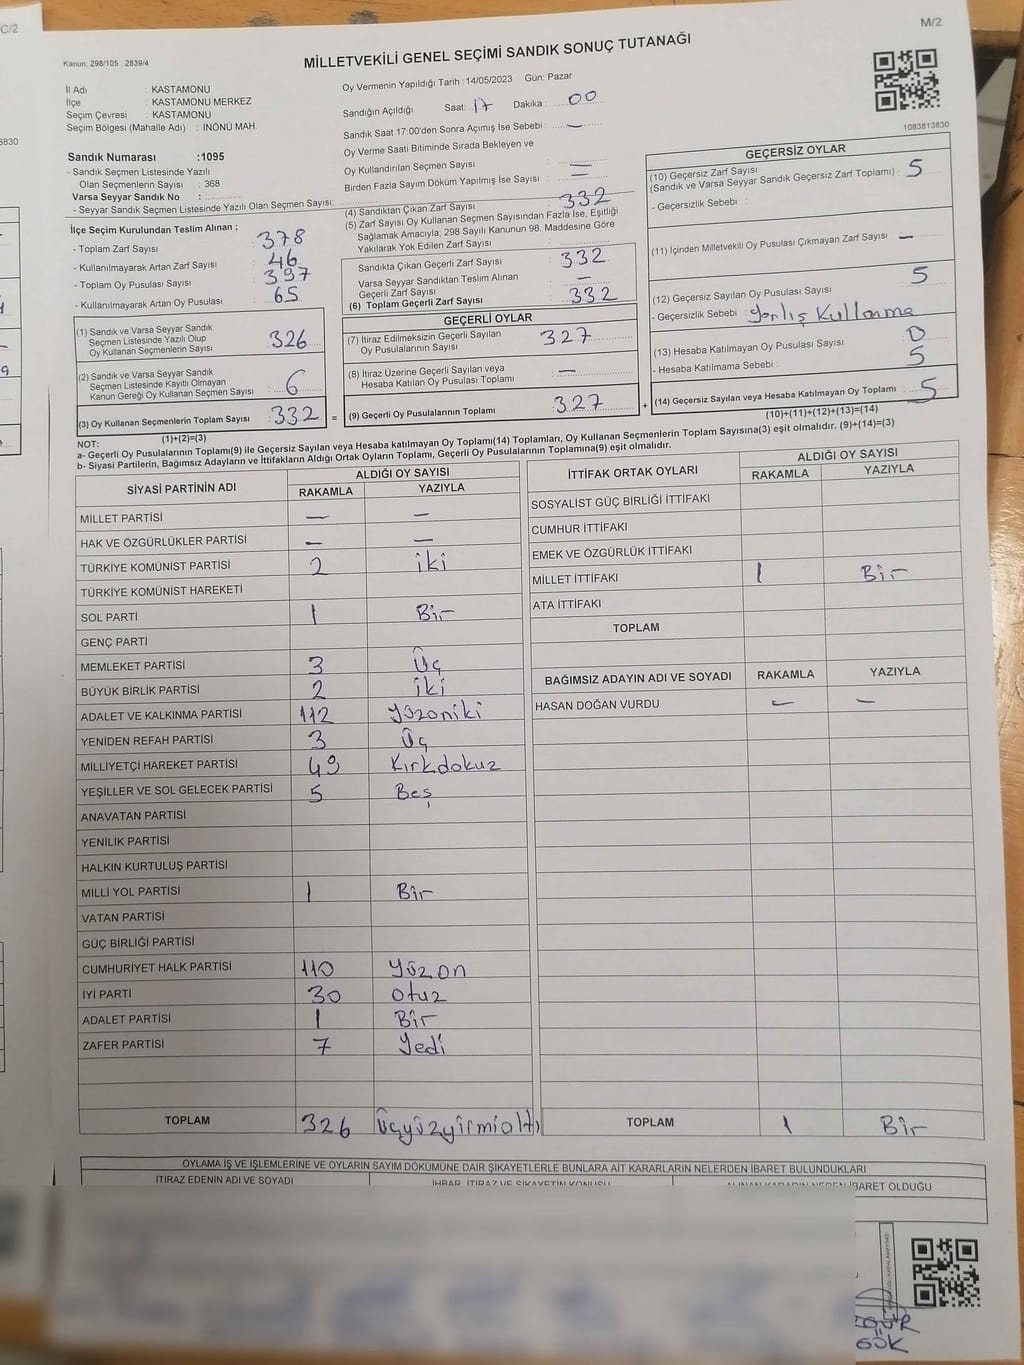 C/2
M/2
Kanun: 298/105 , 2839/4
MİLLETVEKİLİ GENEL SEÇİMİ SANDIK SONUÇ TUTANAĞI
İl Adı : KASTAMONU
İlçe : KASTAMONU MERKEZ
Seçim Çevresi : KASTAMONU
Seçim Bölgesi (Mahalle Adı) : İNÖNÜ MAH.
Sandık Numarası :1095
- Sandık Seçmen Listesinde Yazılı
Olan Seçmenlerin Sayısı : 368
Varsa Seyyar Sandık No :
- Seyyar Sandık Seçmen Listesinde Yazılı Olan Seçmen Sayısı:
Oy Vermenin Yapıldığı Tarih : 14/05/2023 Gün: Pazar
Sandığın Açıldığı Saat: 17 Dakika : 00
Sandık Saat 17:00'den Sonra Açımış İse Sebebi : —
Oy Verme Saati Bitiminde Sırada Bekleyen ve
Oy Kullandırılan Seçmen Sayısı : =
Birden Fazla Sayım Döküm Yapılmış İse Sayısı : =
1083813830
3830
İlçe Seçim Kurulundan Teslim Alınan ;
- Toplam Zarf Sayısı : 378
- Kullanılmayarak Artan Zarf Sayısı : 46
- Toplam Oy Pusulası Sayısı : 397
- Kullanılmayarak Artan Oy Pusulası : 65
(1) Sandık ve Varsa Seyyar Sandık
Seçmen Listesinde Yazılı Olup
Oy Kullanan Seçmenlerin Sayısı : 326
(2) Sandık ve Varsa Seyyar Sandık
Seçmen Listesinde Kayıtlı Olmayan
Kanun Gereği Oy Kullanan Seçmen Sayısı : 6
(3) Oy Kullanan Seçmenlerin Toplam Sayısı : 332 =
(1)+(2)=(3)
(4) Sandıktan Çıkan Zarf Sayısı : 332
(5) Zarf Sayısı Oy Kullanan Seçmen Sayısından Fazla İse, Eşitliği
Sağlamak Amacıyla, 298 Sayılı Kanunun 98. Maddesine Göre
Yakılarak Yok Edilen Zarf Sayısı :
Sandıkta Çıkan Geçerli Zarf Sayısı : 332
Varsa Seyyar Sandıktan Teslim Alınan
Geçerli Zarf Sayısı : —
(6) Toplam Geçerli Zarf Sayısı : 332
GEÇERLİ OYLAR
(7) İtiraz Edilmeksizin Geçerli Sayılan
Oy Pusulalarının Sayısı : 327
(8) İtiraz Üzerine Geçerli Sayılan veya
Hesaba Katılan Oy Pusulası Toplamı : —
(9) Geçerli Oy Pusulalarının Toplamı : 327 +
GEÇERSİZ OYLAR
(10) Geçersiz Zarf Sayısı
(Sandık ve Varsa Seyyar Sandık Geçersiz Zarf Toplamı) : 5
- Geçersizlik Sebebi :
(11) İçinden Milletvekili Oy Pusulası Çıkmayan Zarf Sayısı : —
(12) Geçersiz Sayılan Oy Pusulası Sayısı : 5
- Geçersizlik Sebebi : Yanlış Kullanma
(13) Hesaba Katılmayan Oy Pusulası Sayısı : 0
- Hesaba Katılmama Sebebi : 5
(14) Geçersiz Sayılan veya Hesaba Katılmayan Oy Toplamı : 5
(10)+(11)+(12)+(13)=(14)
NOT:
a- Geçerli Oy Pusulalarının Toplamı(9) ile Geçersiz Sayılan veya Hesaba katılmayan Oy Toplamı(14) Toplamları, Oy Kullanan Seçmenlerin Toplam Sayısına(3) eşit olmalıdır. (9)+(14)=(3)
b- Siyasi Partilerin, Bağımsız Adayların ve İttifakların Aldığı Ortak Oyların Toplamı, Geçerli Oy Pusulalarının Toplamına(9) eşit olmalıdır.
SİYASİ PARTİNİN ADI ALDIĞI OY SAYISI
RAKAMLA YAZIYLA
MİLLET PARTİSİ — —
HAK VE ÖZGÜRLÜKLER PARTİSİ — —
TÜRKİYE KOMÜNİST PARTİSİ 2 iki
TÜRKİYE KOMÜNİST HAREKETİ
SOL PARTİ 1 Bir
GENÇ PARTİ
MEMLEKET PARTİSİ 3 Üç
BÜYÜK BİRLİK PARTİSİ 2 iki
ADALET VE KALKINMA PARTİSİ 112 Yüzoniki
YENİDEN REFAH PARTİSİ 3 Üç
MİLLİYETÇİ HAREKET PARTİSİ 49 Kırkdokuz
YEŞİLLER VE SOL GELECEK PARTİSİ 5 Beş
ANAVATAN PARTİSİ
YENİLİK PARTİSİ
HALKIN KURTULUŞ PARTİSİ
MİLLİ YOL PARTİSİ 1 Bir
VATAN PARTİSİ
GÜÇ BİRLİĞİ PARTİSİ
CUMHURİYET HALK PARTİSİ 110 Yüzon
İYİ PARTİ 30 Otuz
ADALET PARTİSİ 1 Bir
ZAFER PARTİSİ 7 Yedi
TOPLAM 326 Üçyüzyirmialtı
İTTİFAK ORTAK OYLARI ALDIĞI OY SAYISI
RAKAMLA YAZIYLA
SOSYALİST GÜÇ BİRLİĞİ İTTİFAKI
CUMHUR İTTİFAKI
EMEK VE ÖZGÜRLÜK İTTİFAKI
MİLLET İTTİFAKI 1 Bir
ATA İTTİFAKI
TOPLAM
BAĞIMSIZ ADAYIN ADI VE SOYADI RAKAMLA YAZIYLA
HASAN DOĞAN VURDU — —
TOPLAM 1 Bir
OYLAMA İŞ VE İŞLEMLERİNE VE OYLARIN SAYIM DÖKÜMÜNE DAİR ŞİKAYETLERLE BUNLARA AİT KARARLARIN NELERDEN İBARET BULUNDUKLARI
İTİRAZ EDENİN ADI VE SOYADI İHBAR, İTİRAZ VE ŞİKAYETİN KONUSU ALINAN KARARIN NEDEN İBARET OLDUĞU